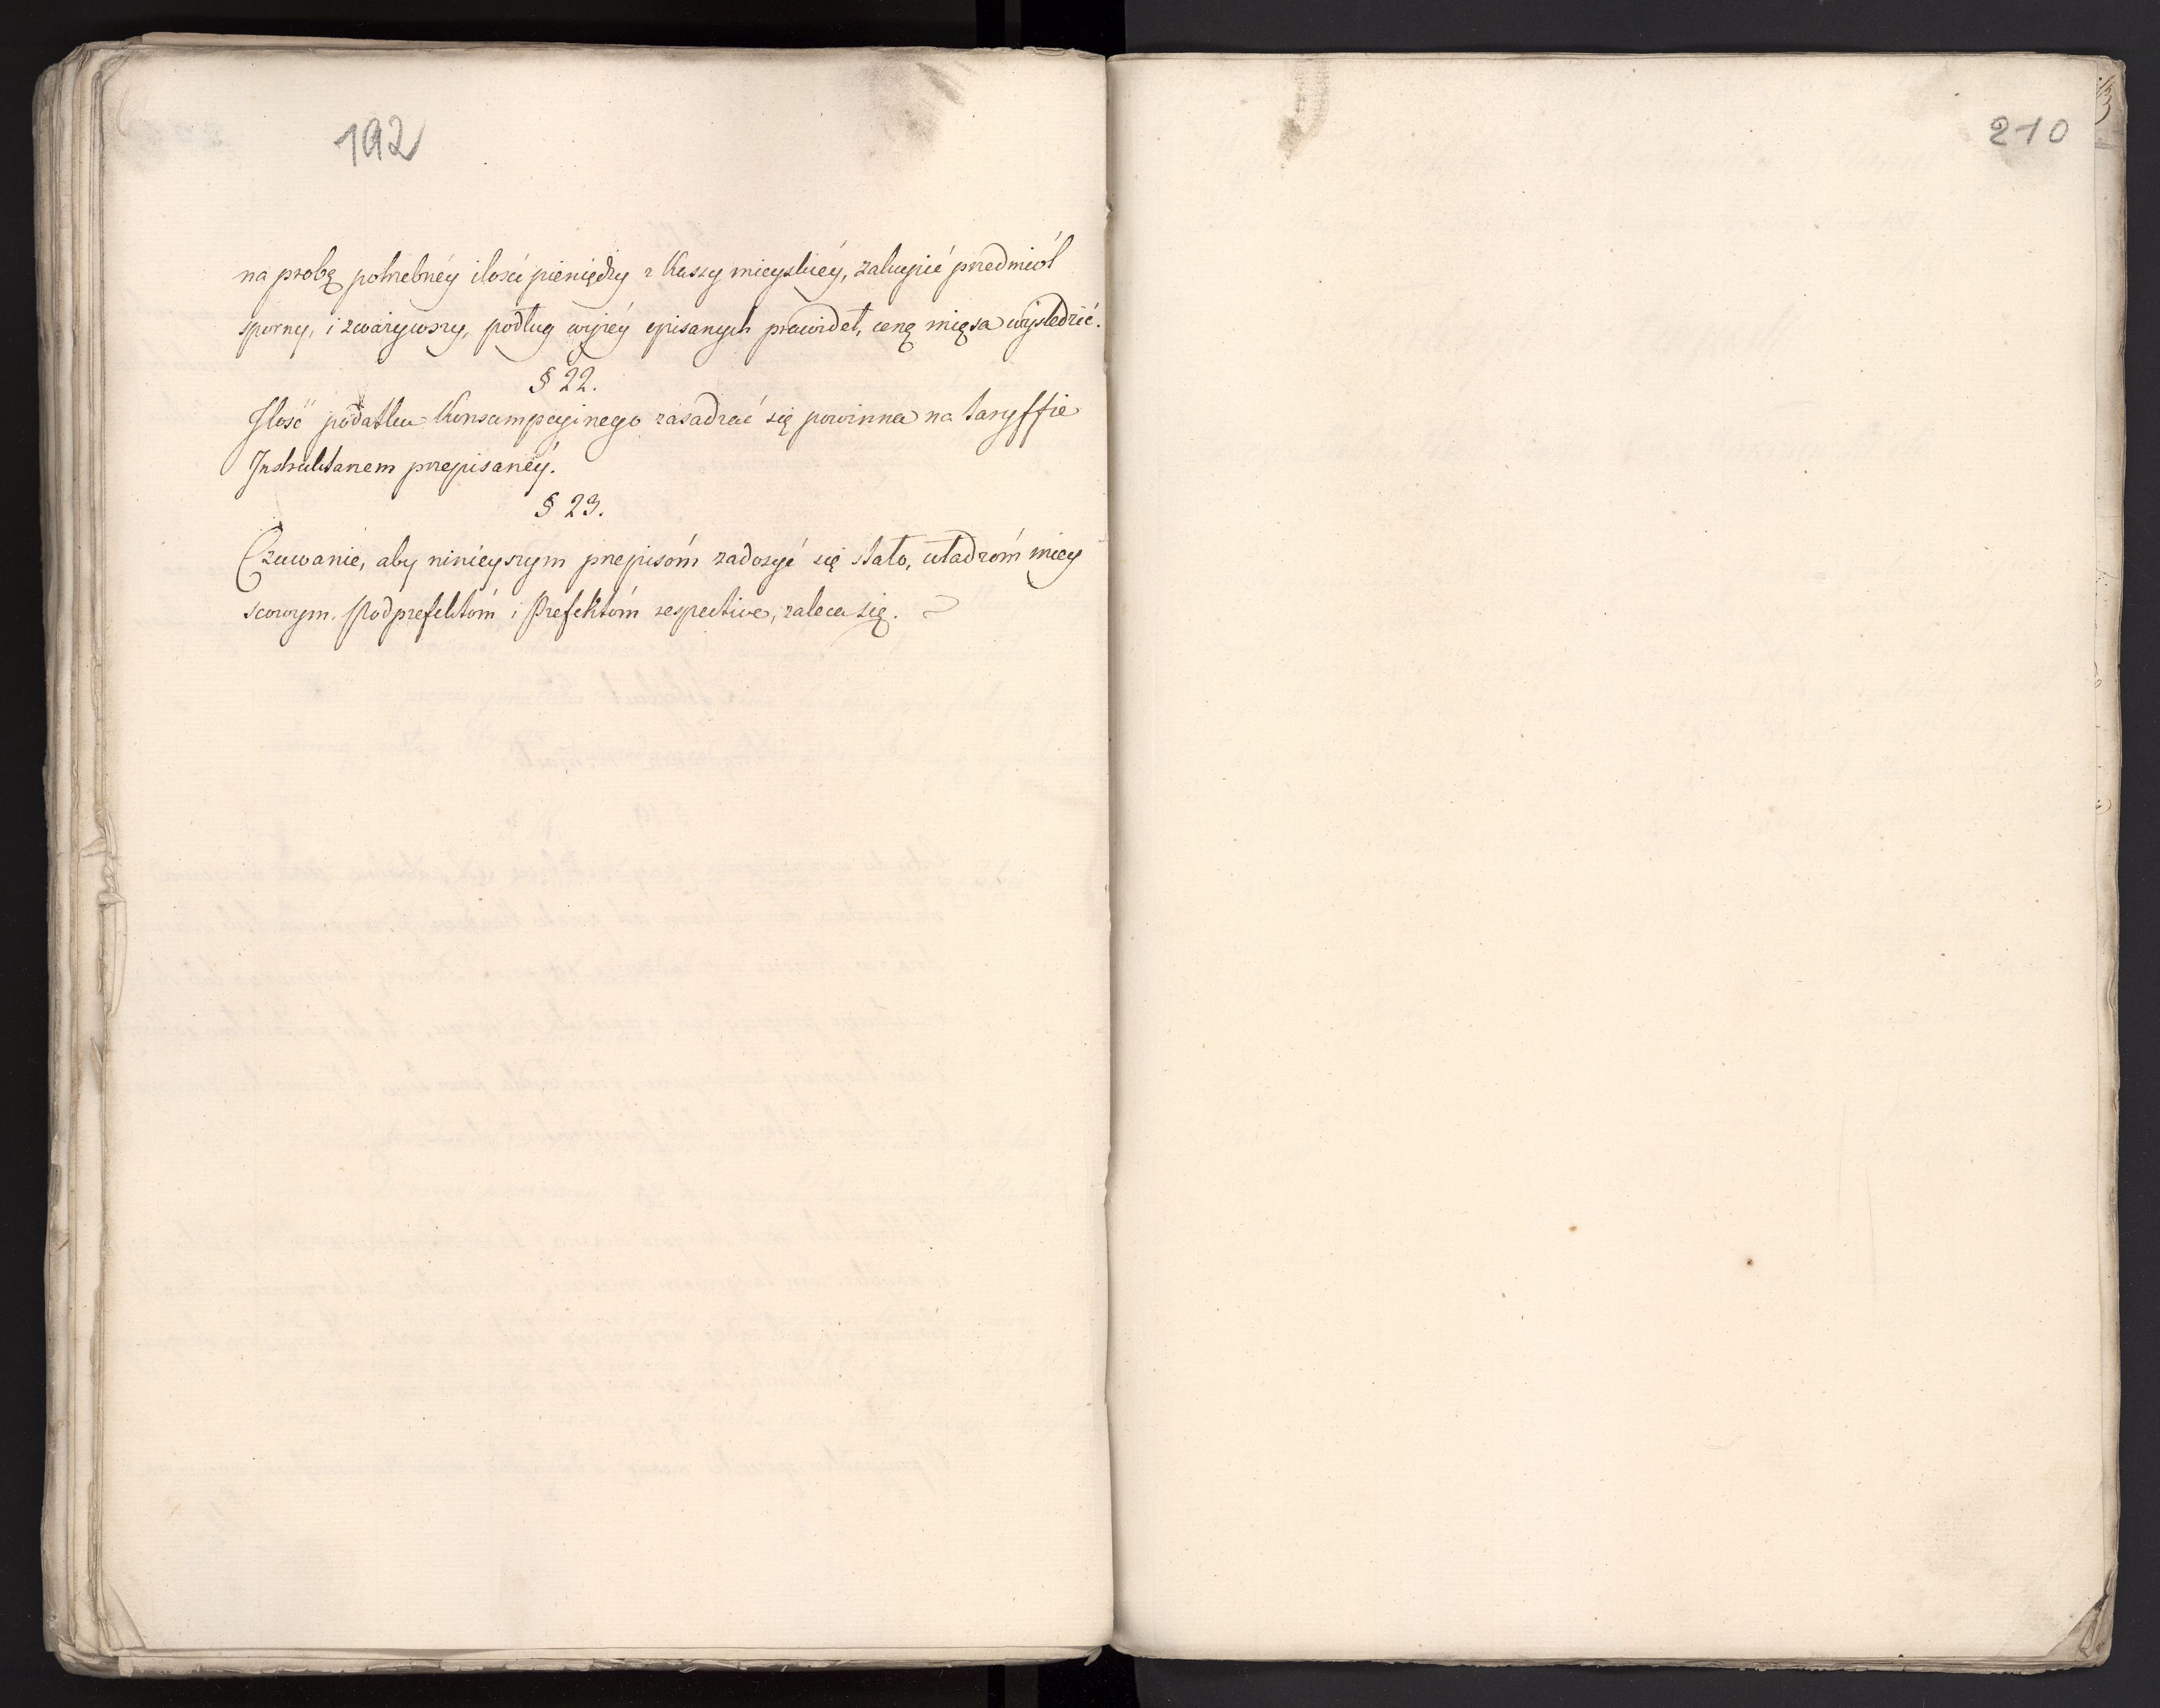 192
na probę potrzebnéy ilości pieniędzy z Kassy mieyskiéy, zakupić przedmiót
sporny, i zważywszy, podług wyżéy opisanych prawideł, cenę mięsa wyśledzić.
§ 22.
Ilość podatku Konsumpcyinego zasadzać się powinna na taryffie
Instruktarzem przepisanéy.
§ 23.
Czuwanie, aby ninieyszym przepisóm zadosyć się stało, władzóm miey
scowym. Podprefektóm i Prefektóm respective, zaleca się.
210